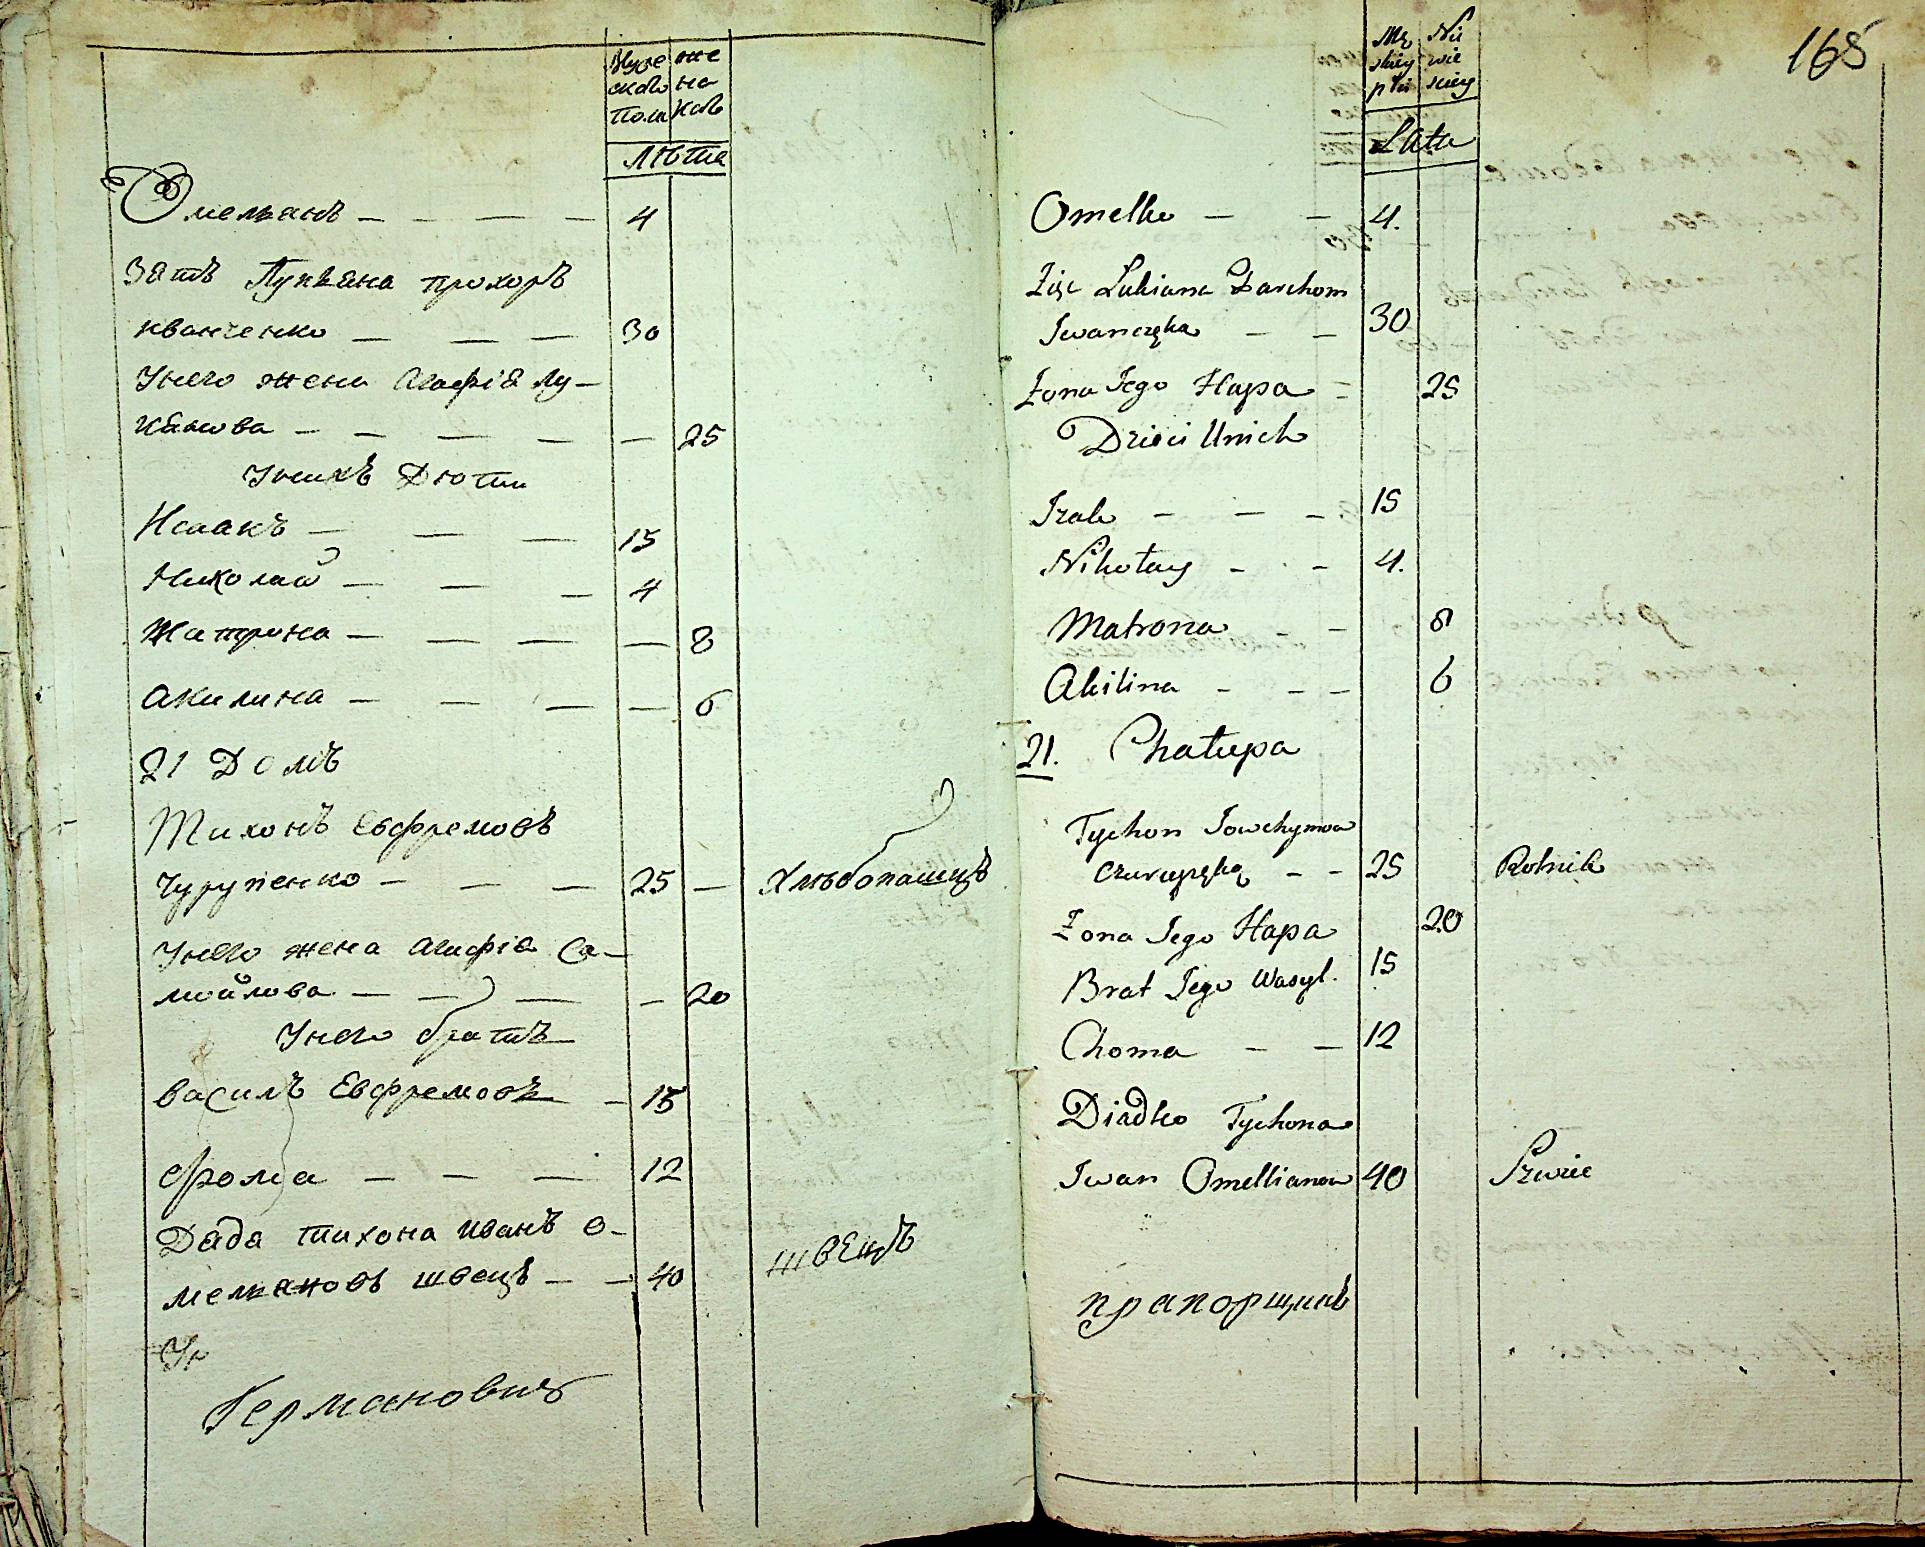 Муже же
скаго на
пола каго
лѣта
Омельянъ — — — — 4
Зять Лукьяна Прохоръ
иванченко — — — 30
Унего жена Агафія лу-
кьянова — — — — — 25
Унихъ Дѣти
Исаакъ — — — 15
Николай — — — 4
Матрона — — — — — 8
Акилина — — — — 6
21 Домъ
Тихонъ Евфремовъ
Чурупенко — — — 25 — Хлѣбопашецъ
Унего жена агафія Са-
мойлова — — — — 20
Унего братъ
Василъ Евфремовъ — 15
Фома — — — 12
Дядя тихона иванъ о-
мельяновъ швецъ — — 40 швецъ
Ун
Германовичъ
165
Mę Nie
skiey wie
płci skiey
Lata
Omelko — — 4.
Zięć Lukiana Parchom
Iwanczęka — — 30
Żona Jego Hapa = 25
Dzieci Unich
Izak — — — 15
Nikołay — — 4.
Matrona — — 8
Akilina — — — 6
21. Chałupa
Tychon Jowchymow
Czurupęka — — 25 Rolnik
Żona Jego Hapa 20
Brat Jego Wasyl. 15
Choma — — 12
Diadko Tychona
Iwan Omellianow 40 Szwiec
прапорщикъ